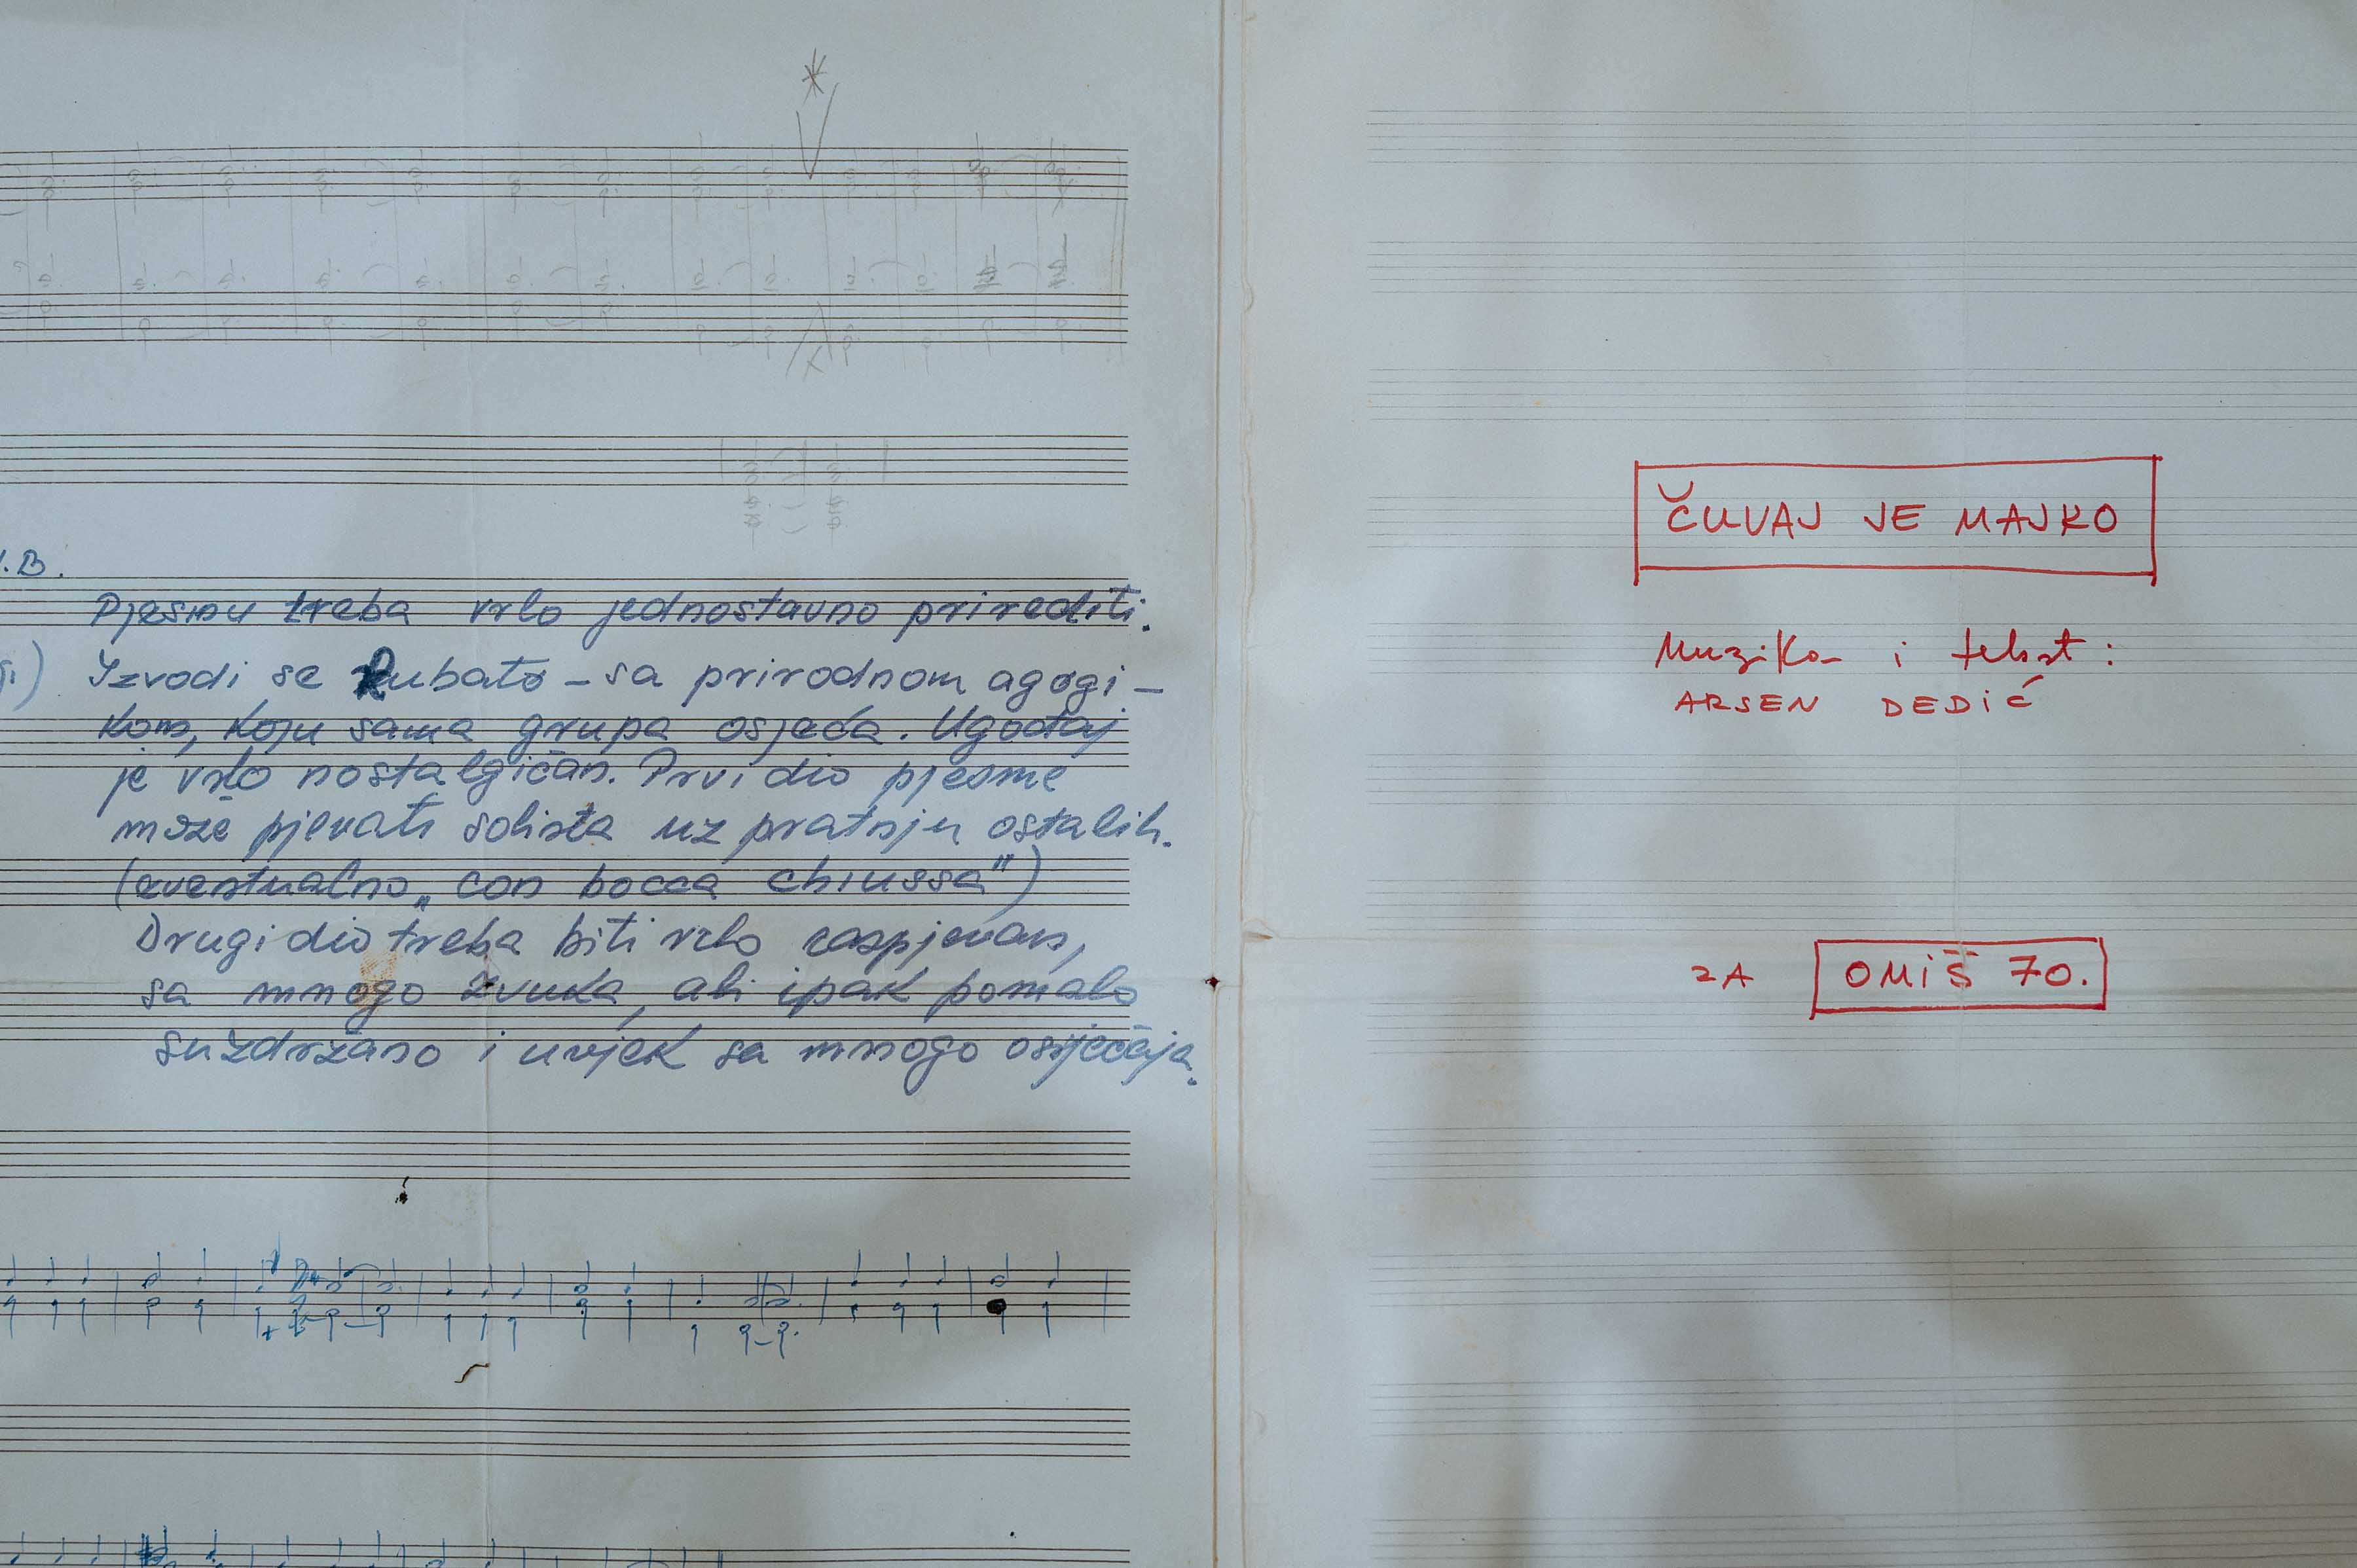 .B.
Pjesmu treba vrlo jednostavno prirediti.
Izvodi se Rubato – sa prirodnom agogi–
kom, koju sama grupa osjeća. Ugođaj
je vrlo nostalgičan. Prvi dio pjesme
može pjevati solista uz pratnju ostalih.
(eventualno „con bocca chiussa")
Drugi dio treba biti vrlo raspjevan,
sa mnogo zvuka, ali ipak pomalo
suzdržano i uvjek sa mnogo osjećaja.
ČUVAJ JE MAJKO
Muzika i tekst:
ARSEN DEDIĆ
ZA OMIŠ 70.